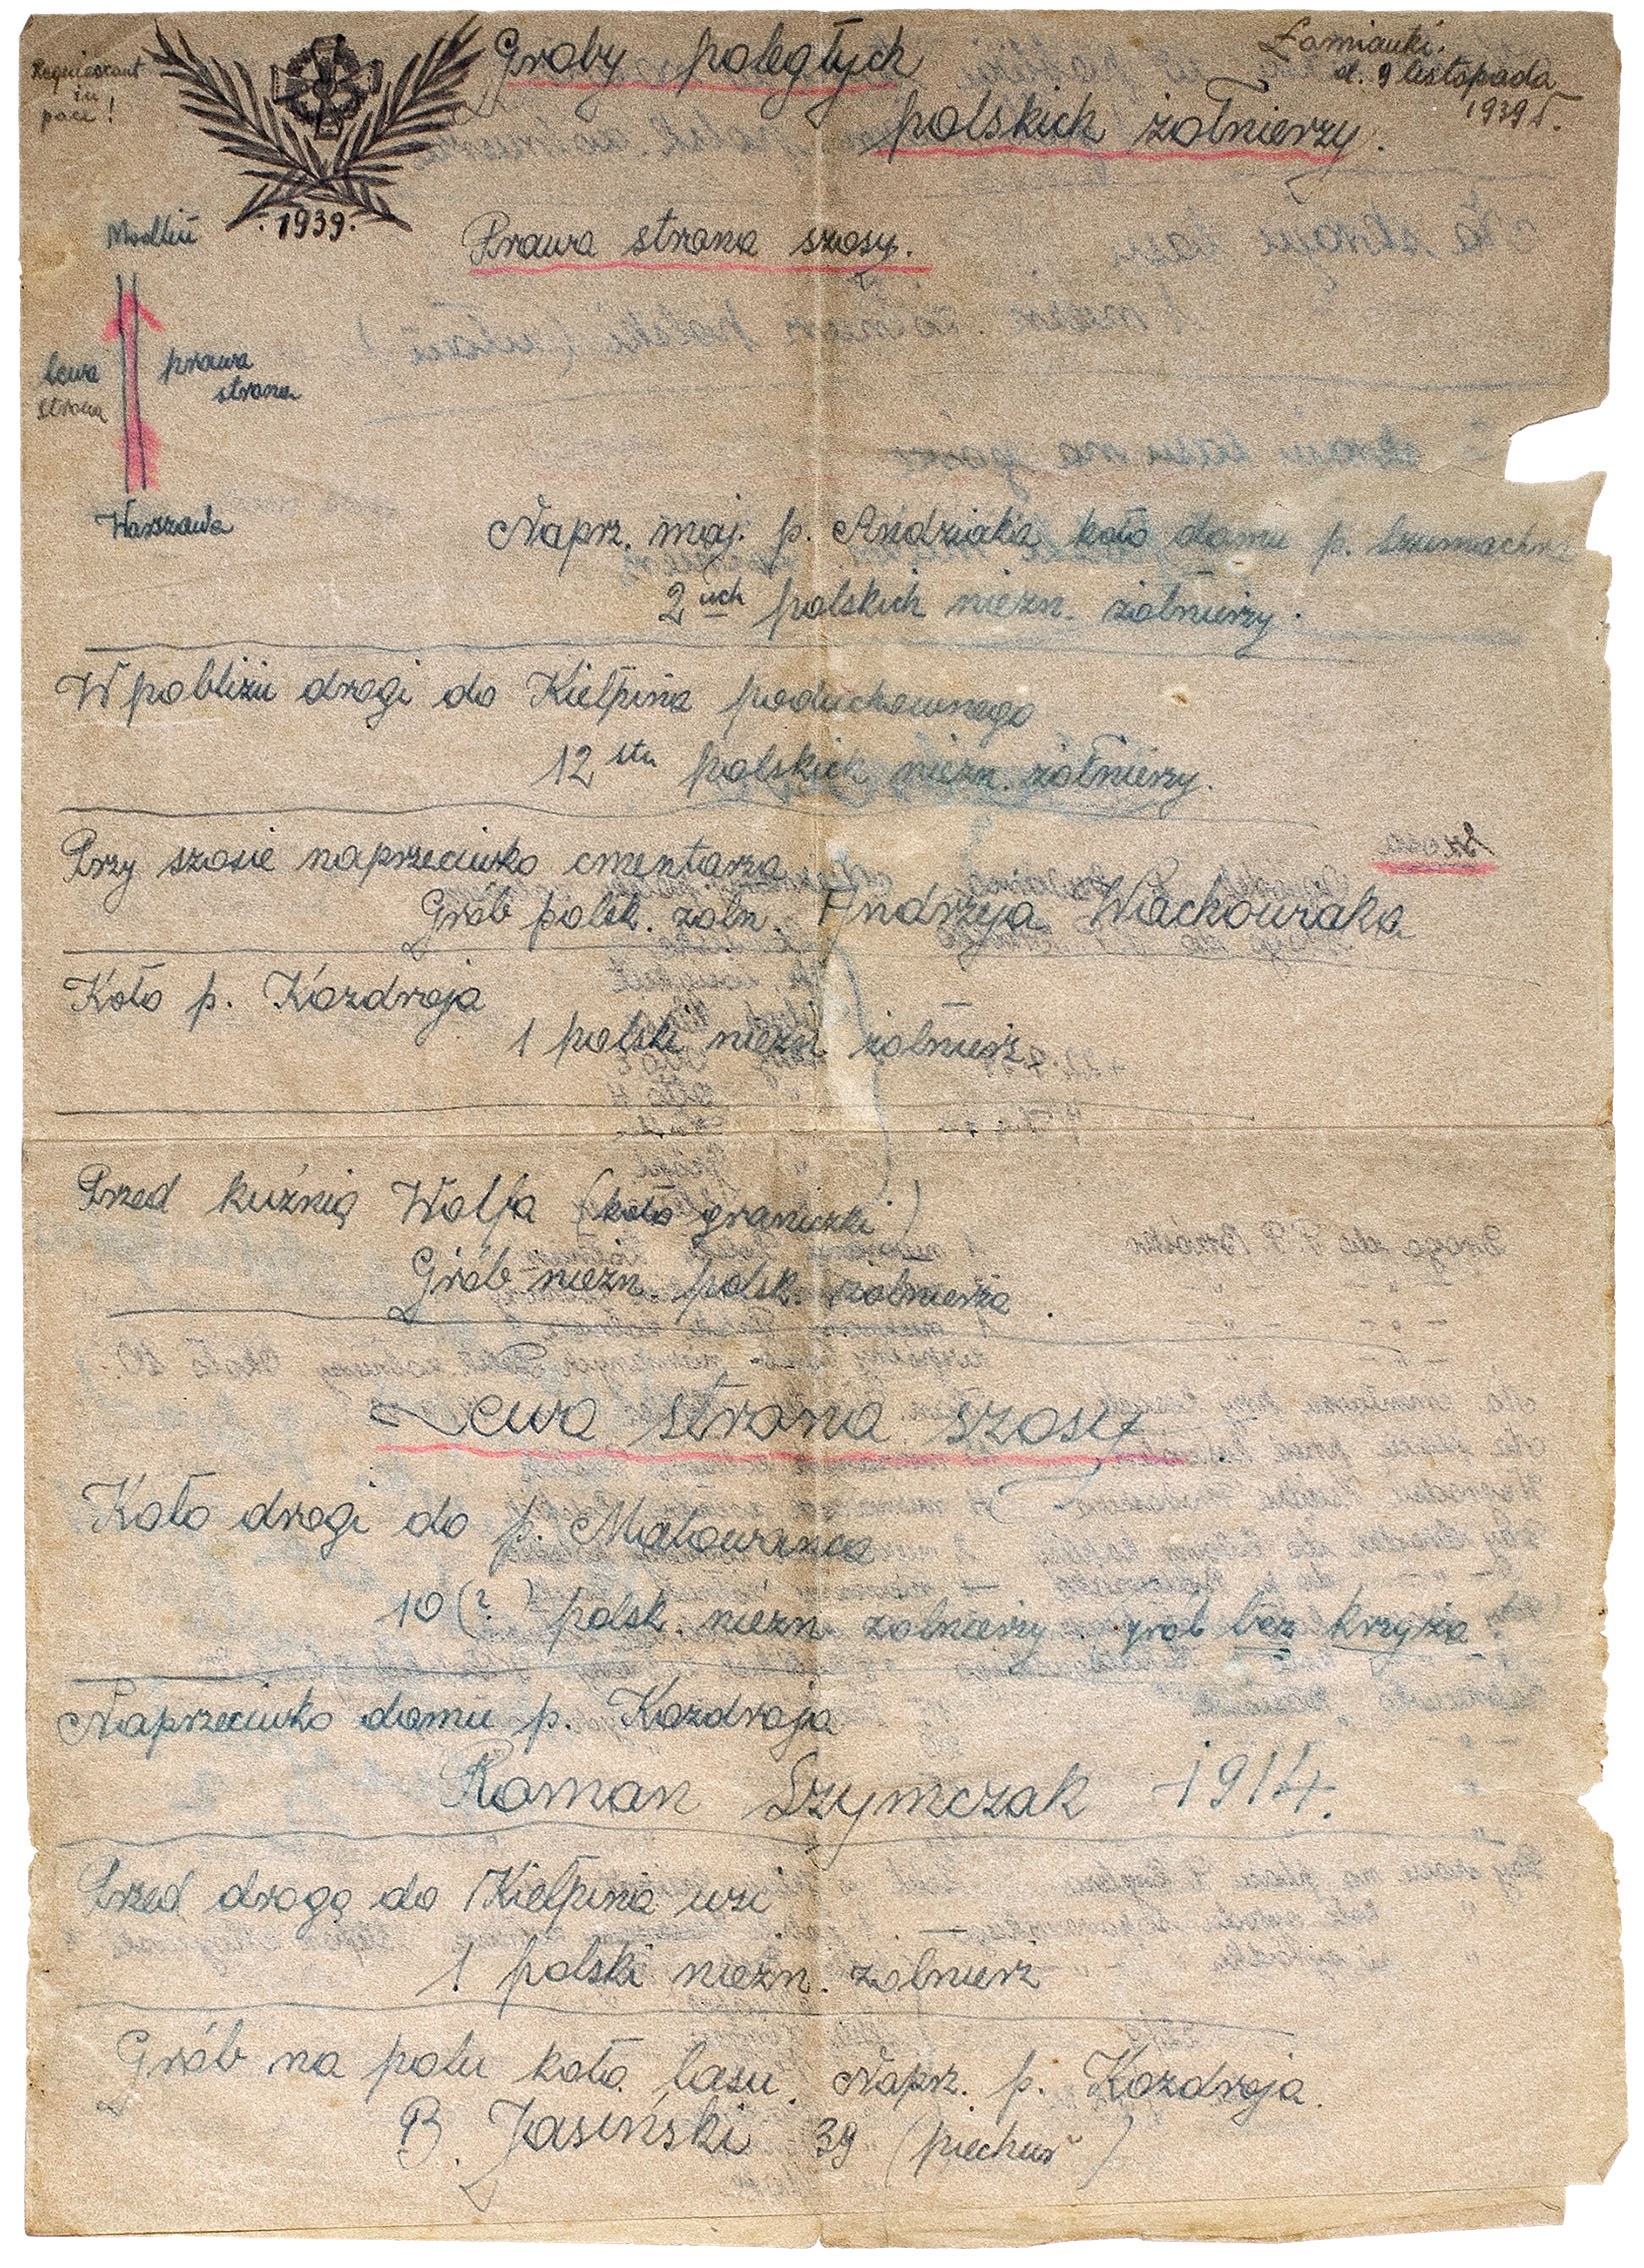 Requiescant
in
pace!
1939.
Groby poległych
polskich żołnierzy.
Łomianki.
d. 9 listopada
1939 r.
Modlin
lewa
strona
prawa
strona
Warszawa
Prawa strona szosy.
Naprz. maj. p. Andziaka koło domu p.
2 uch polskich niezn. żołnierzy.
W pobliżu drogi do Kiełpina poduchownego
12 stu polskich niezn. żołnierzy.
Przy szosie naprzeciwko cmentarza
Szosa
Grób polsk. żołn. Andrzeja Wackowiaka
Koło p. Kozdroja
1 polski niezn. żołnierz
Przed kuźnią Wolfa (koło graniczki)
Grób niezn. polsk. żołnierza.
Lewa strona szosy
Koło drogi do p.
10 (?) polsk. niezn. żołnierzy. grób bez krzyża!
Naprzeciwko domu p. Kozdroja
Roman Szymczak 1914.
Przed drogą do Kiełpina wsi
1 polski niezn. żołnierz
Grób na polu koło lasu. Naprz. p. Kozdroja.
B. Jasiński 39 (piechur)